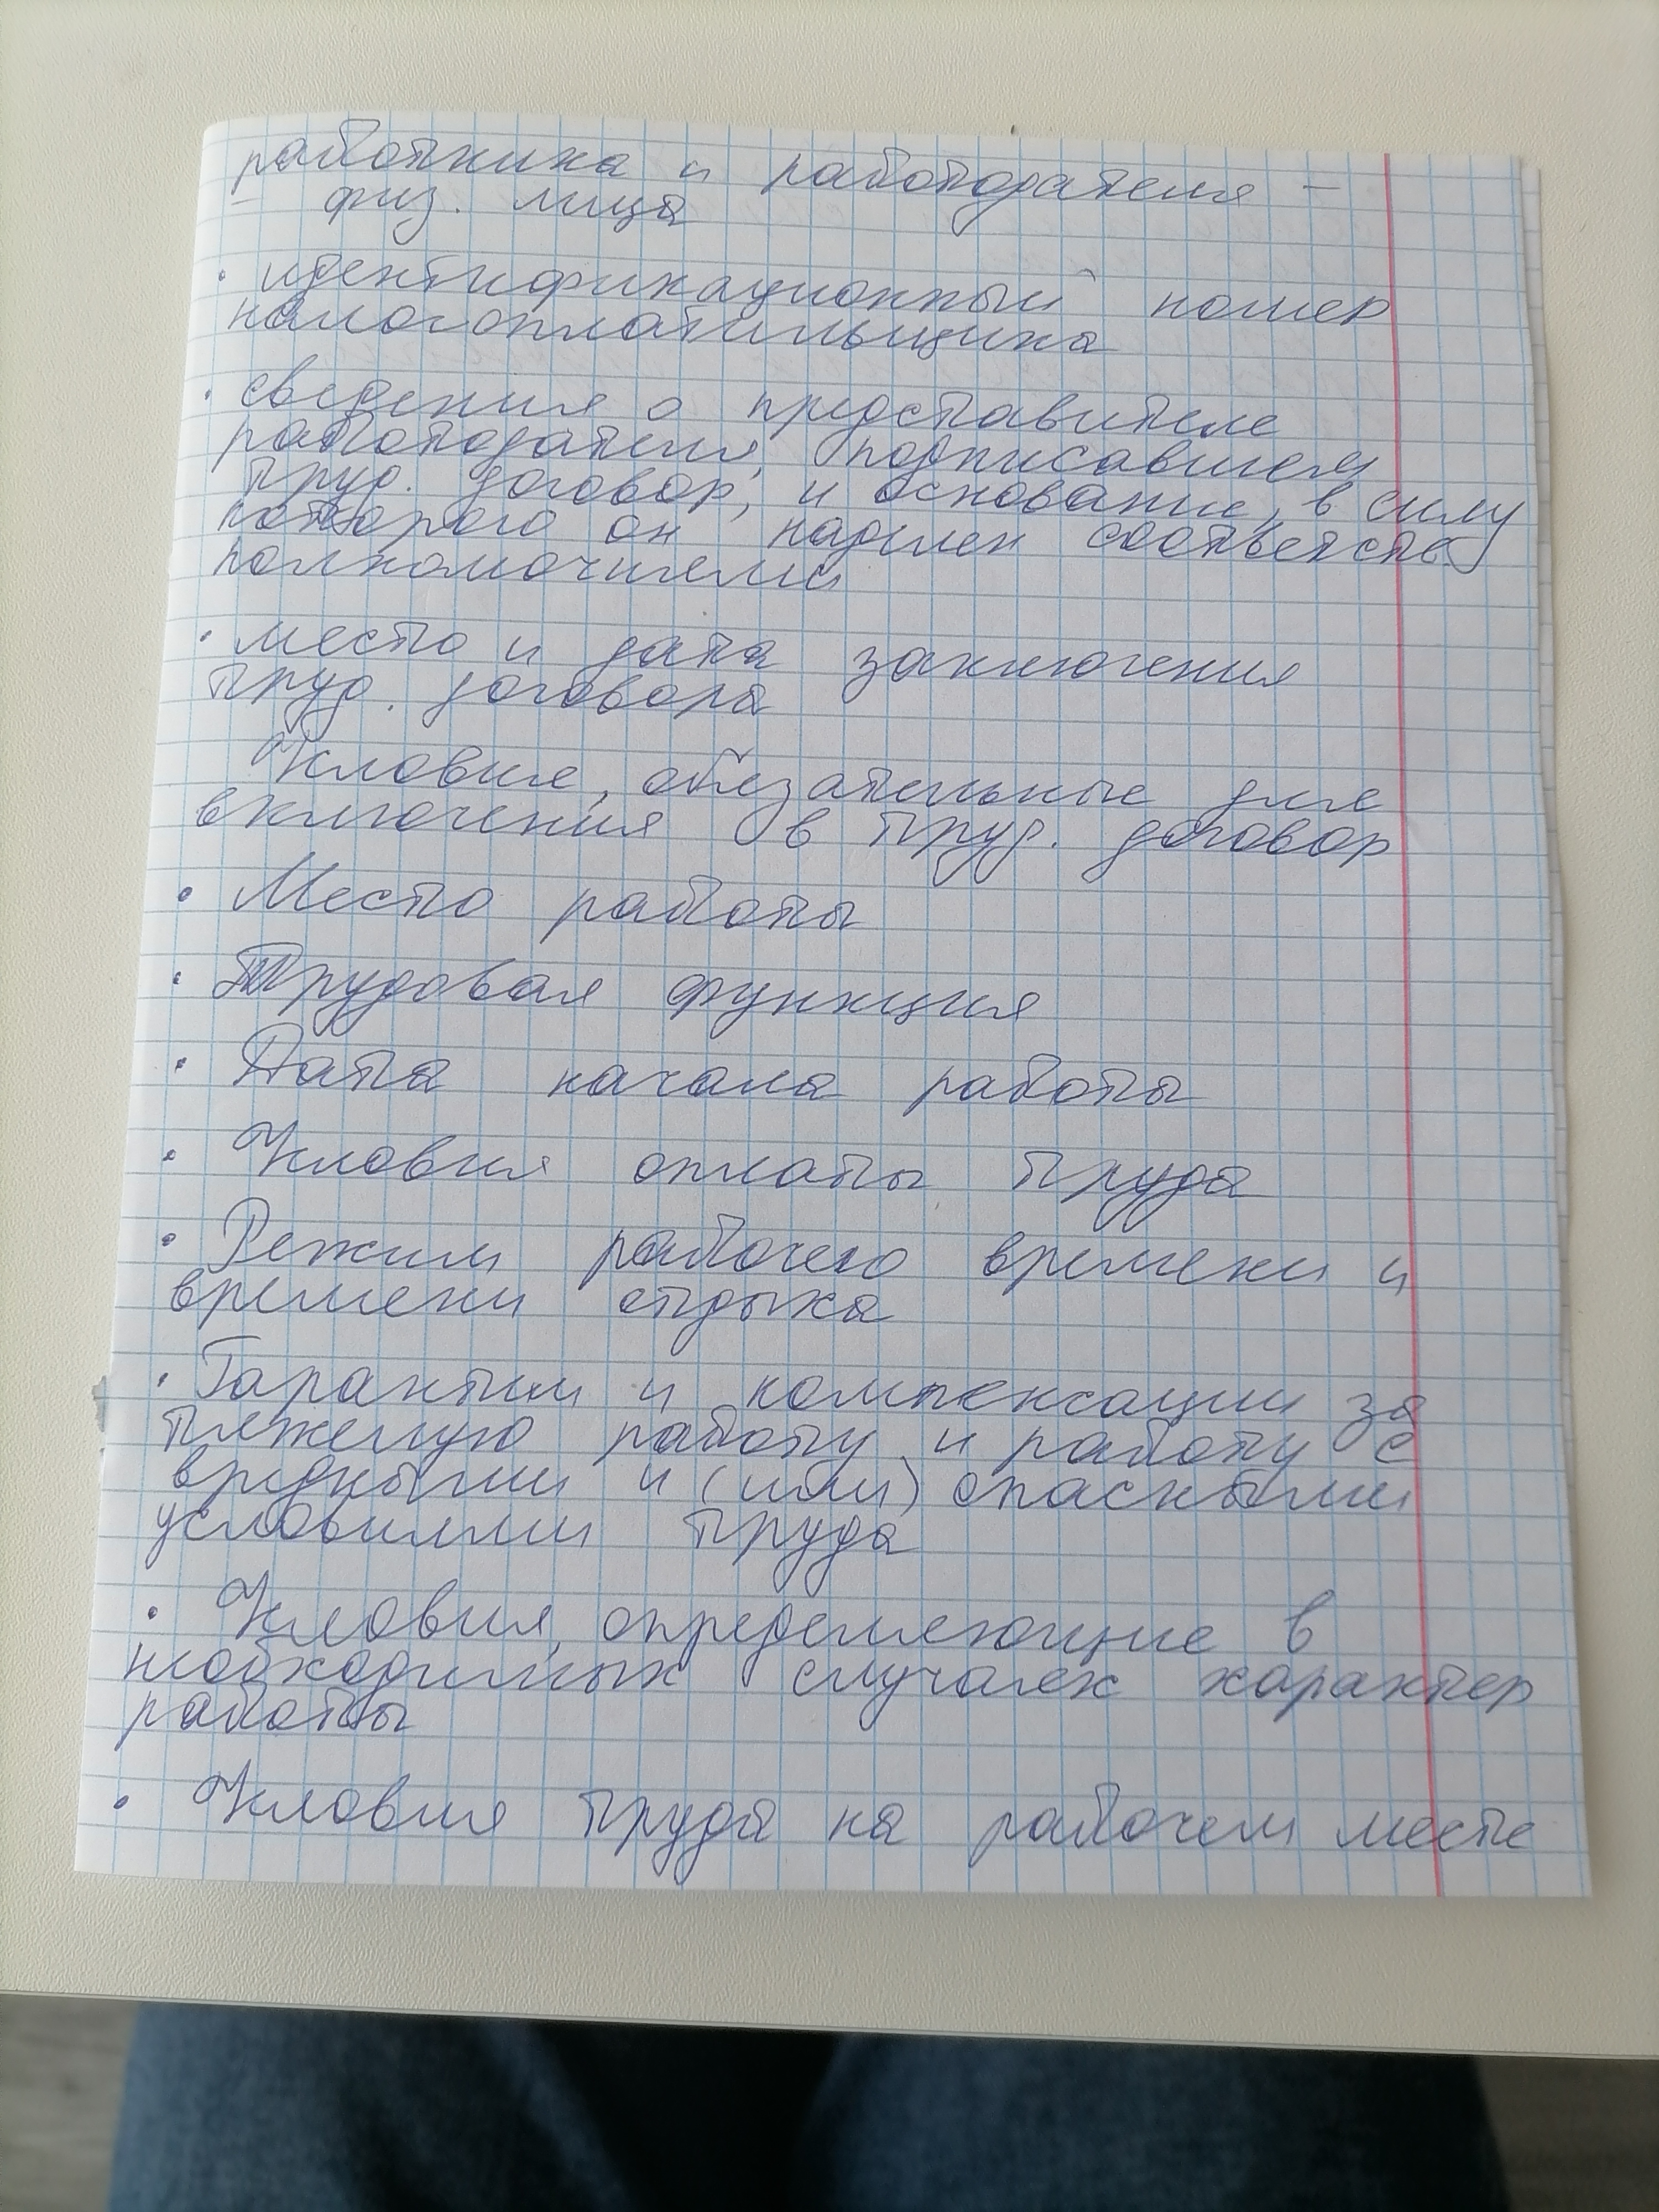 работника и работодателя –
– физ. лица
· идентификационный номер
налогоплательщика
· сведения о представителе
работодателя, подписавшем
труд. договор, и основание, в силу
которого он наделен соответств
полномочиями
· место и дата заключения
труд. договора
Условие, обязательные для
включения в труд. договор
· Место работы
· Трудовая функция
· Дата начала работы
· Условия оплаты труда
· Режим рабочего времени и
времени отдыха
· Гарантии и компенсации за
тяжелую работу и работу с
вредными и (или) опасными
условиями труда
· Условия, определяющие в
необходимых случаях характер
работы
· Условия труда на рабочем месте